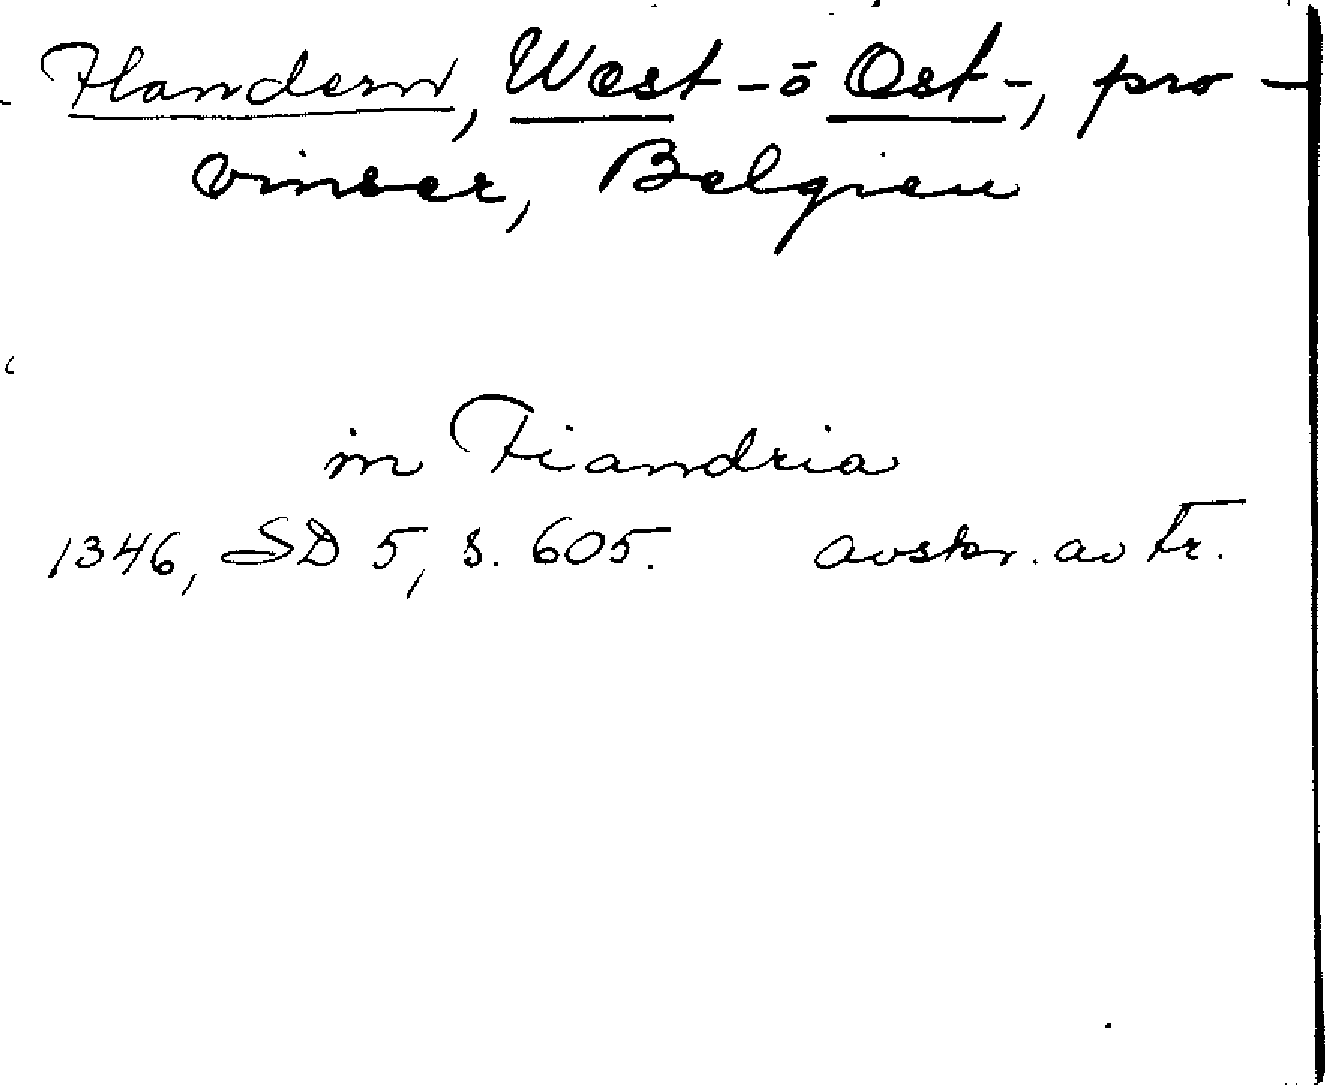 Flandern, West- ō Ost-, pro-
vinser, Belgien
in Fiandria
1346, SD 5, s. 605. avskr. av Fr.